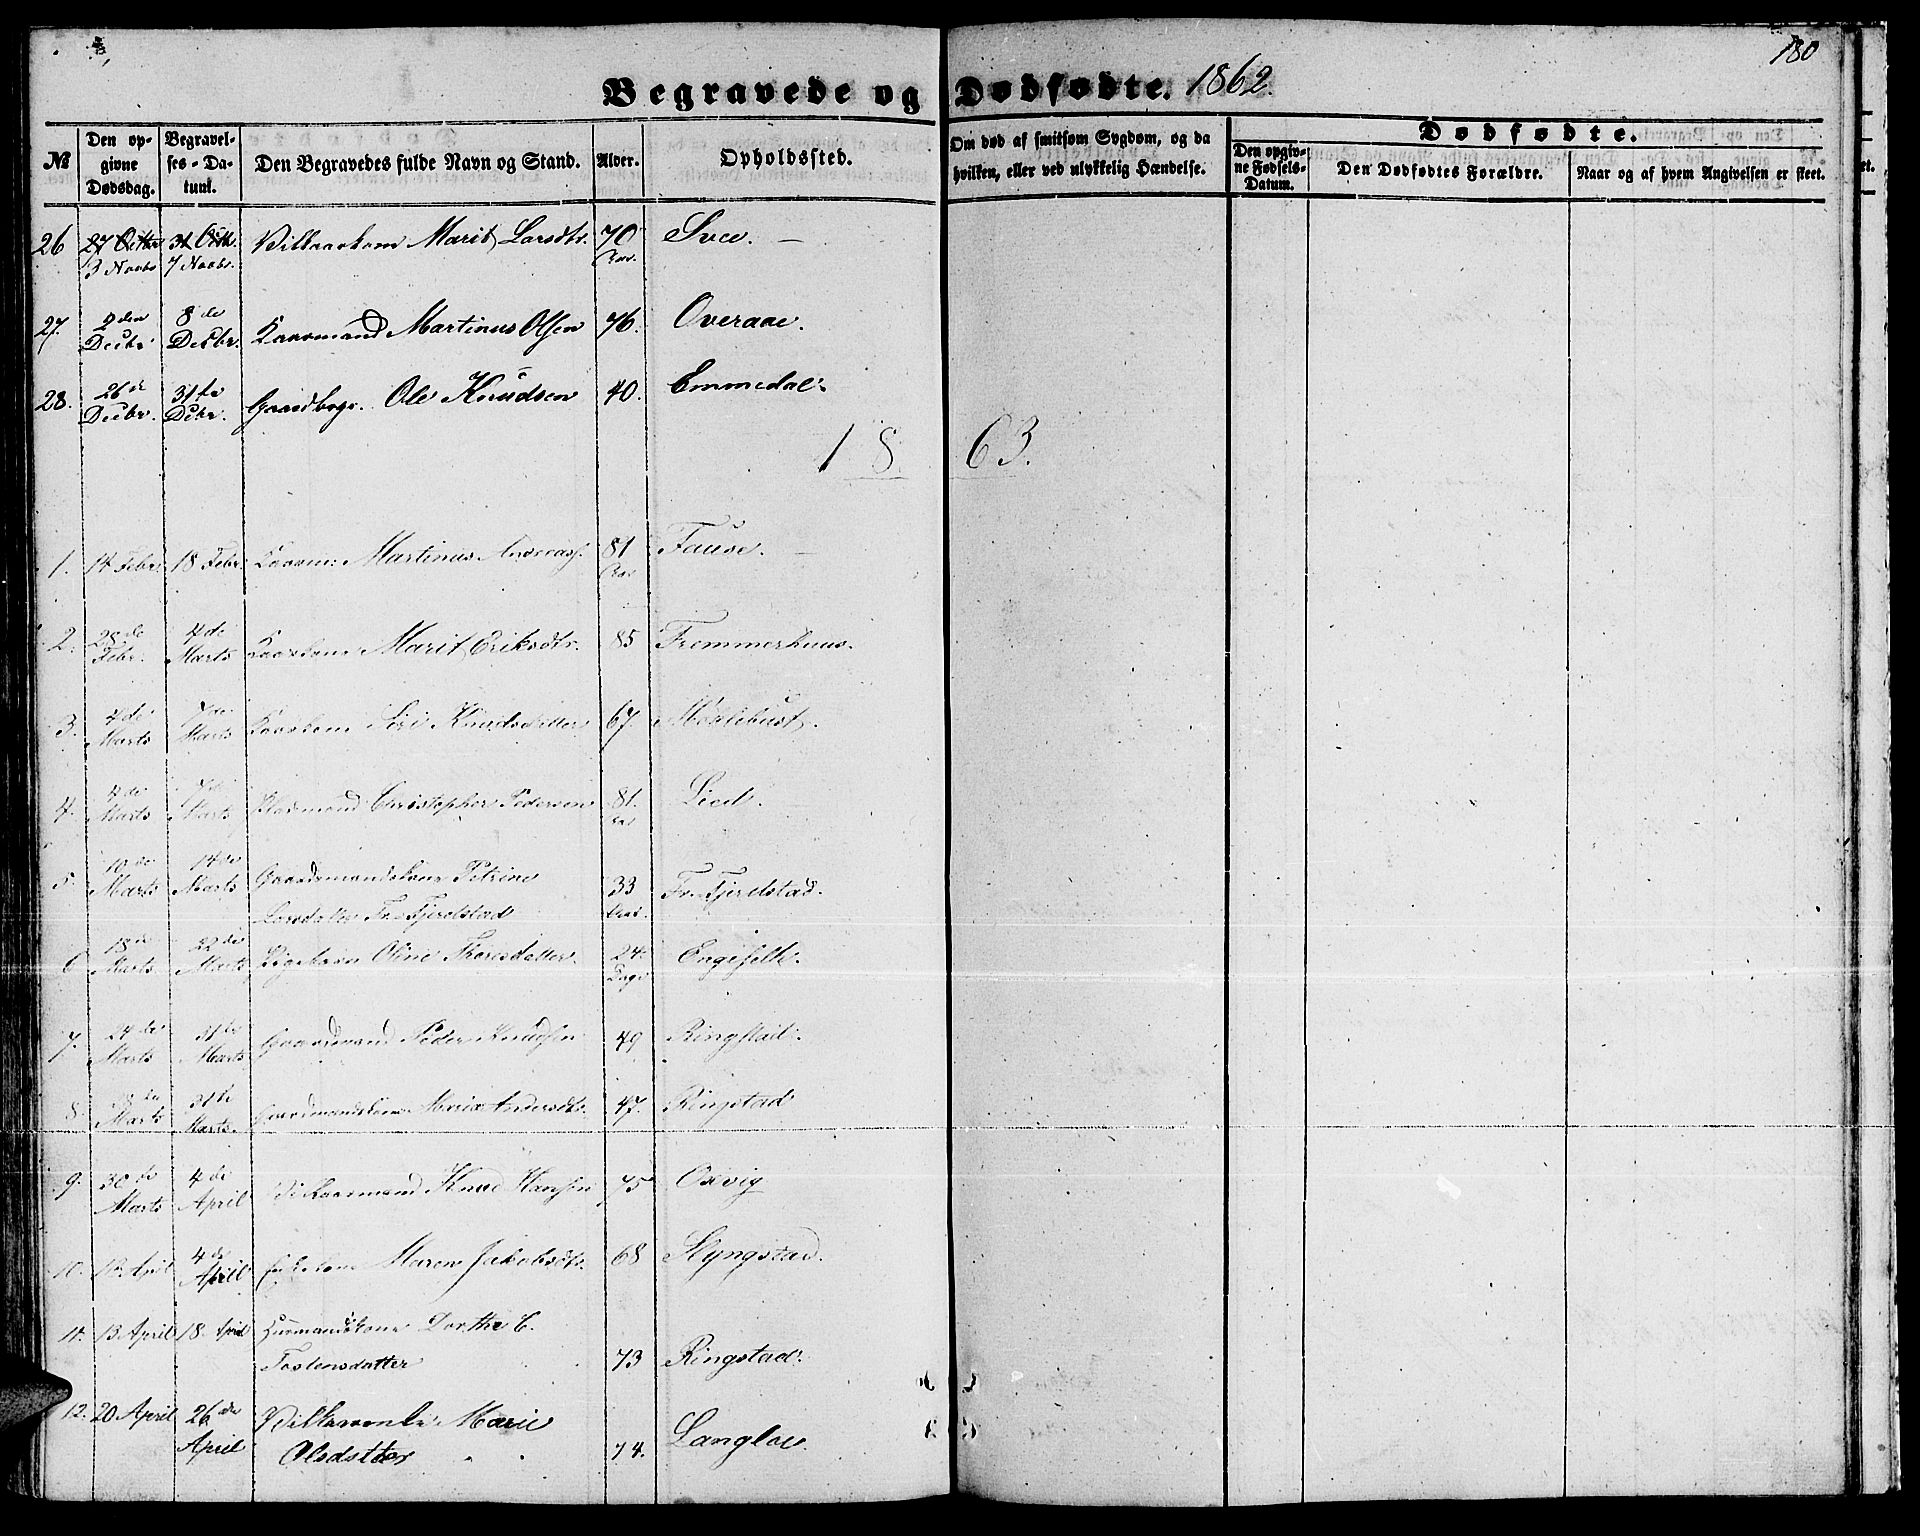 180
Begravede og Dødfødte. 1862.
№
Den opgivne Dødsdag.
Begravelses-Datum.
Den Begravedes fulde Navn og Stand.
Alder.
Opholdssted.
Om død af smitsom Sygdom, og da hvilken, eller ved ulykkelig Hændelse.
Dødfødte.
Den opgivne Fødsels-Datum.
Den Dødfødtes Forældre.
Naar og af hvem Angivelsen er skeet.
26 27 Octbr 31 Octb. Marit Larsdtr. 70 Sve. —
3 Novbr 7 Novbr. Aar.
27. 2den 8de Martinus Olsen 76. Overaae.
Decbr Decbr. Kaarmand
28. 26de 31te Ole Knudsen 40. Emmedal.
Decbr. Decbr. Gaardbrgr.
1863.
1. 14 Febr. 18 Febr. Martinus 81 Fause. —
Aar
2. 28de 4de Kaarkone Marit Eriksdtr. 85 Fremmerhuus.
Febr. Marts
3. 4de 7de Kaarkone Siri Knudsdatter 67. Møllebust.
Marts Marts
4. 4de 7de Christopher Pedersen 81. Lied.
Marts Marts Aar
5. 10de 14de Gaardmandskone Petrine 33 Fr. Fjerdstad.
Marts Marts Larsdatter Fr. Fjerdstad Aar.
6 18de 22de Pigebarn Oline 24. Engeset.
Marts Marts Dage
7. 24de 31te Gaardmand Peder Knudsen 49 Ringstad.
Marts Marts
8. 31te Gaardmandskone Andersdtr. 47. Ringstad
Marts Marts.
9. 30de 4de Kaarmand Knud Hansen 75 Oxvig
Marts April
10. April 4de Maren Jakobsdtr. 68 Slyngstad.
April
11. 13 April 18. April Huusmandskone Dorthe C.
Tostensdatter 73 Ringstad.
12. 20 April 26de Marie
April Olsdatter 74. Langloe.